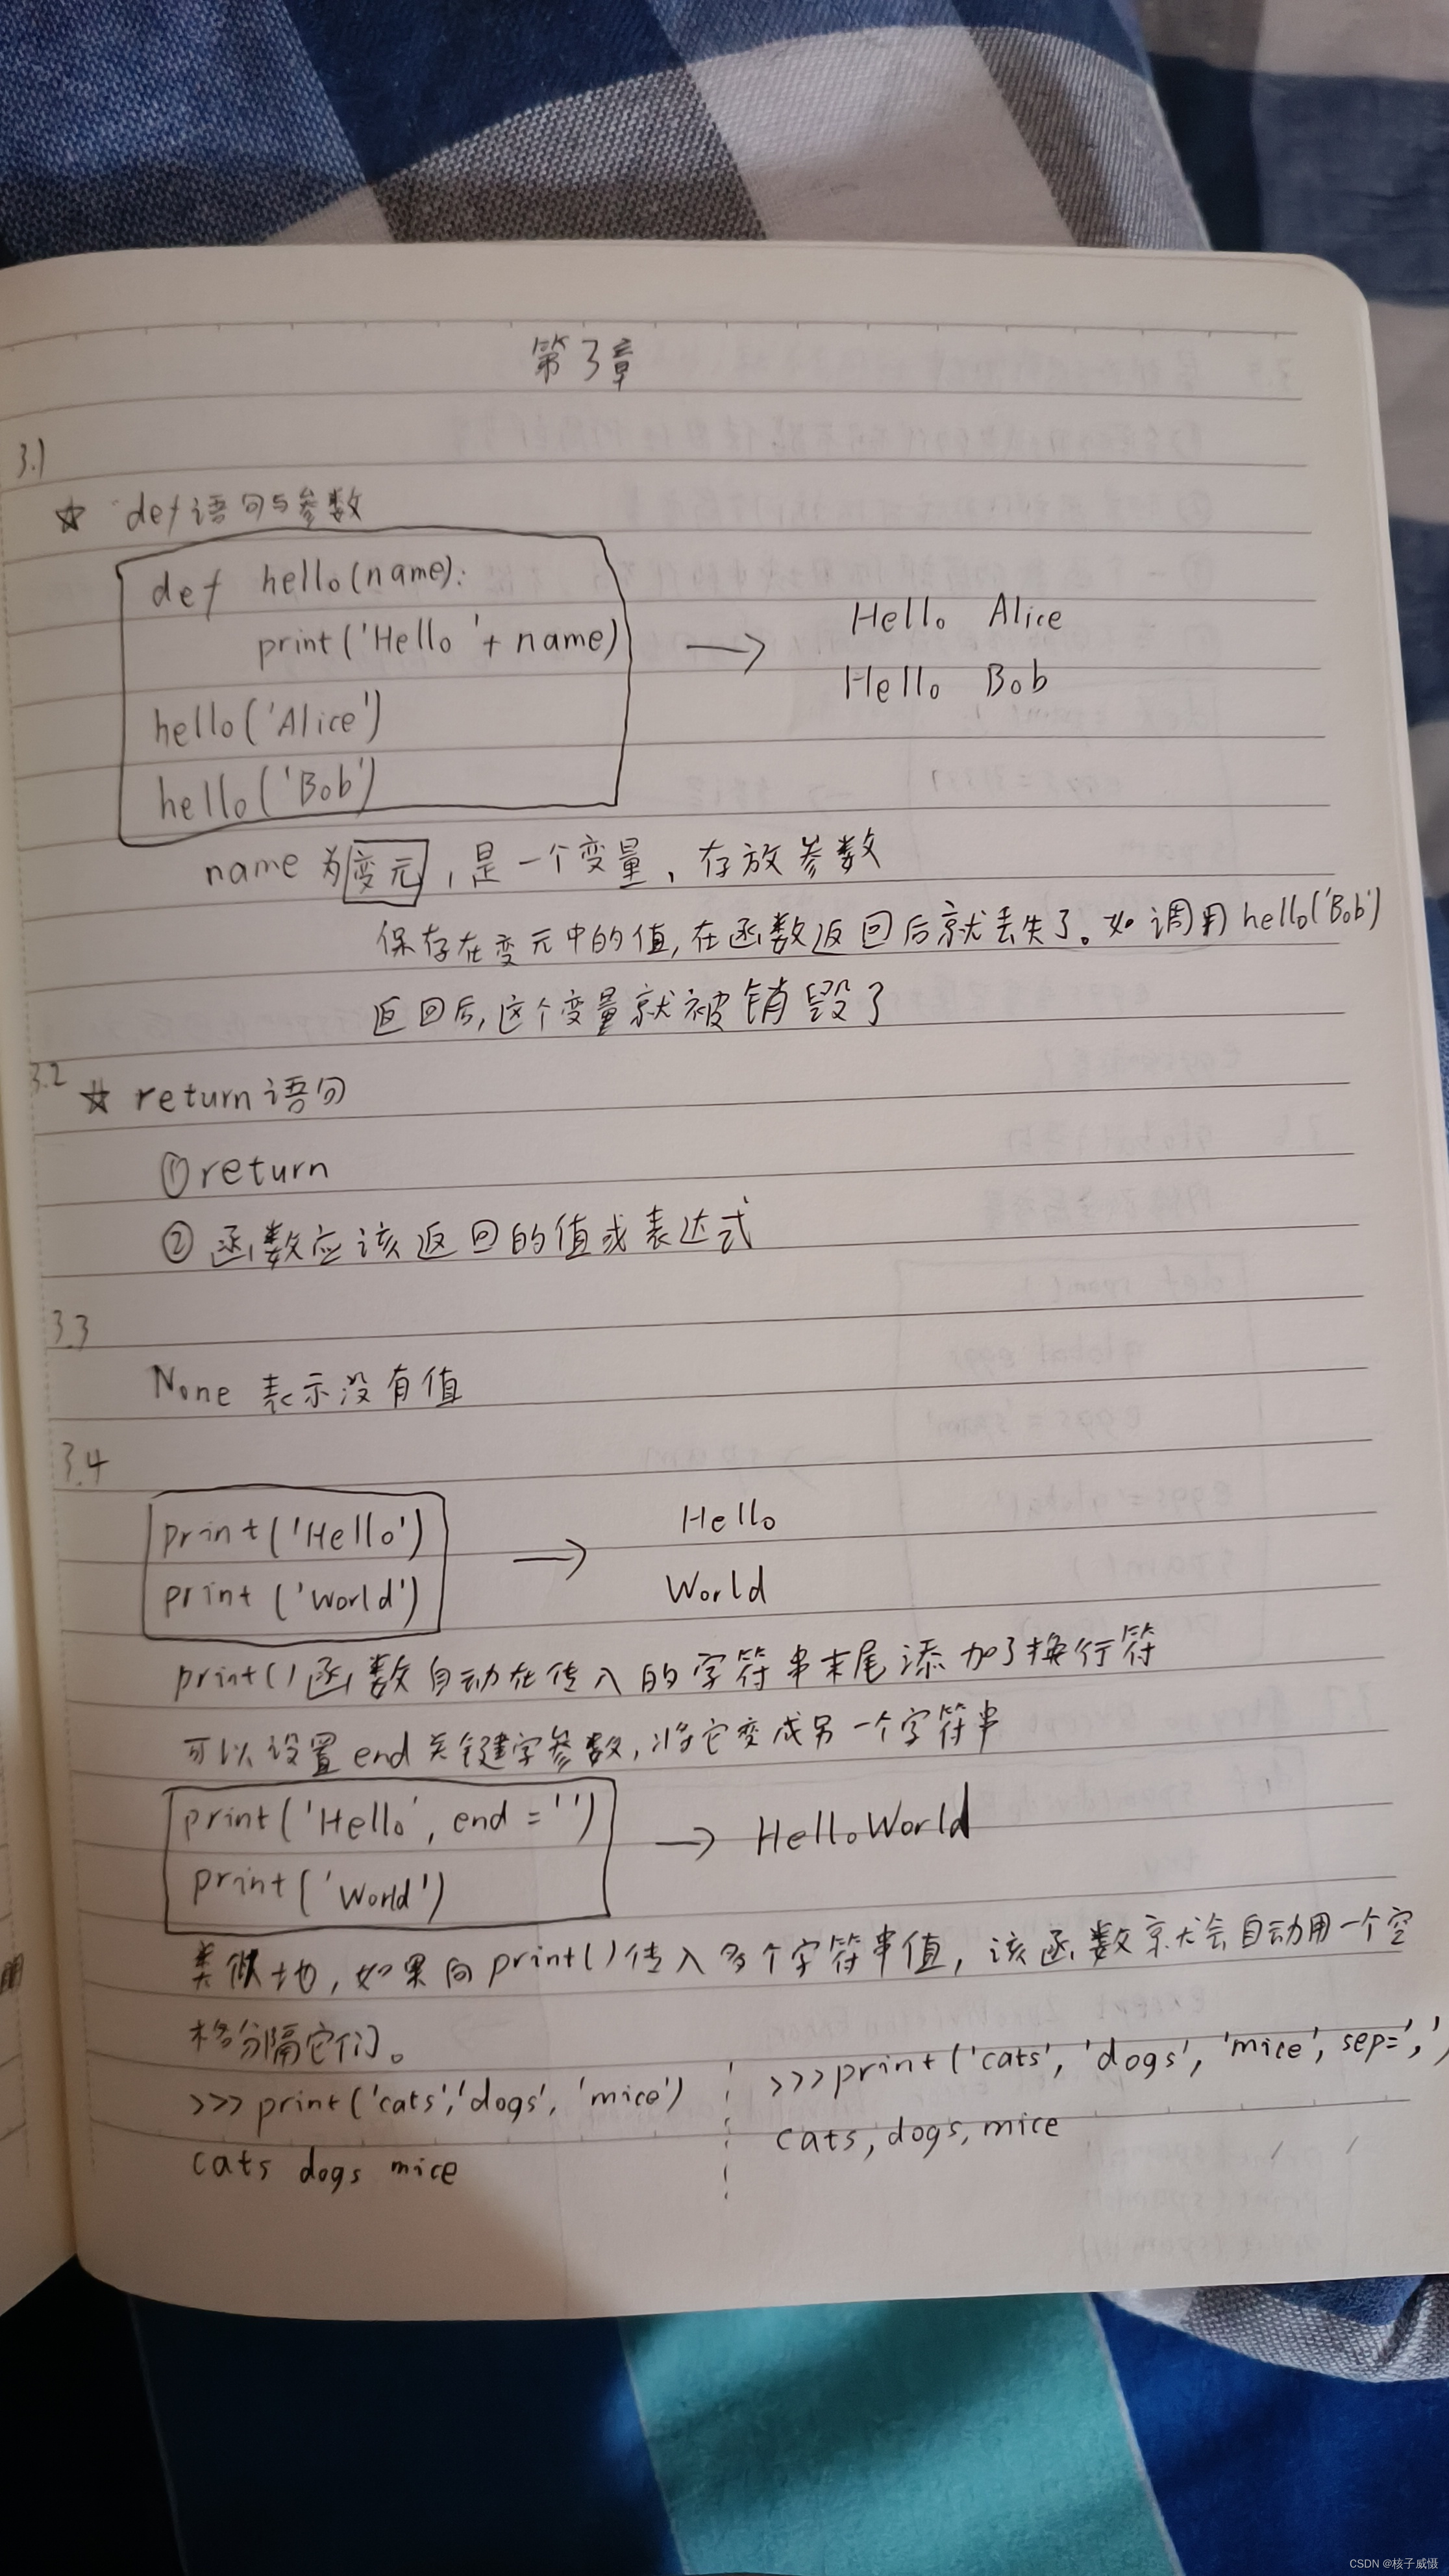 第3章
3.1
☆ def语句与参数
def hello(name):
print('Hello '+ name)
hello('Alice')
hello('Bob')
→ Hello Alice
Hello Bob
name 为变元,是一个变量,存放参数
保存在变元中的值,在函数返回后就丢失了。如调用hello('Bob')
返回后,这个变量就被销毁了
3.2 ☆ return语句
①return
②函数应该返回的值或表达式
3.3
None 表示没有值
3.4
print('Hello')
print('World')
→ Hello
World
print()函数自动在传入的字符串末尾添加了换行符
可以设置end关键字参数,将它变成另一个字符串
print('Hello', end='')
print('World')
→ HelloWorld
类似地,如果向print()传入多个字符串值,该函数就会自动用一个空
格分隔它们。
>>>print('cats','dogs', 'mice')
cats dogs mice
>>>print('cats', 'dogs', 'mice', sep=',')
cats,dogs,mice
CSDN @核子威慑